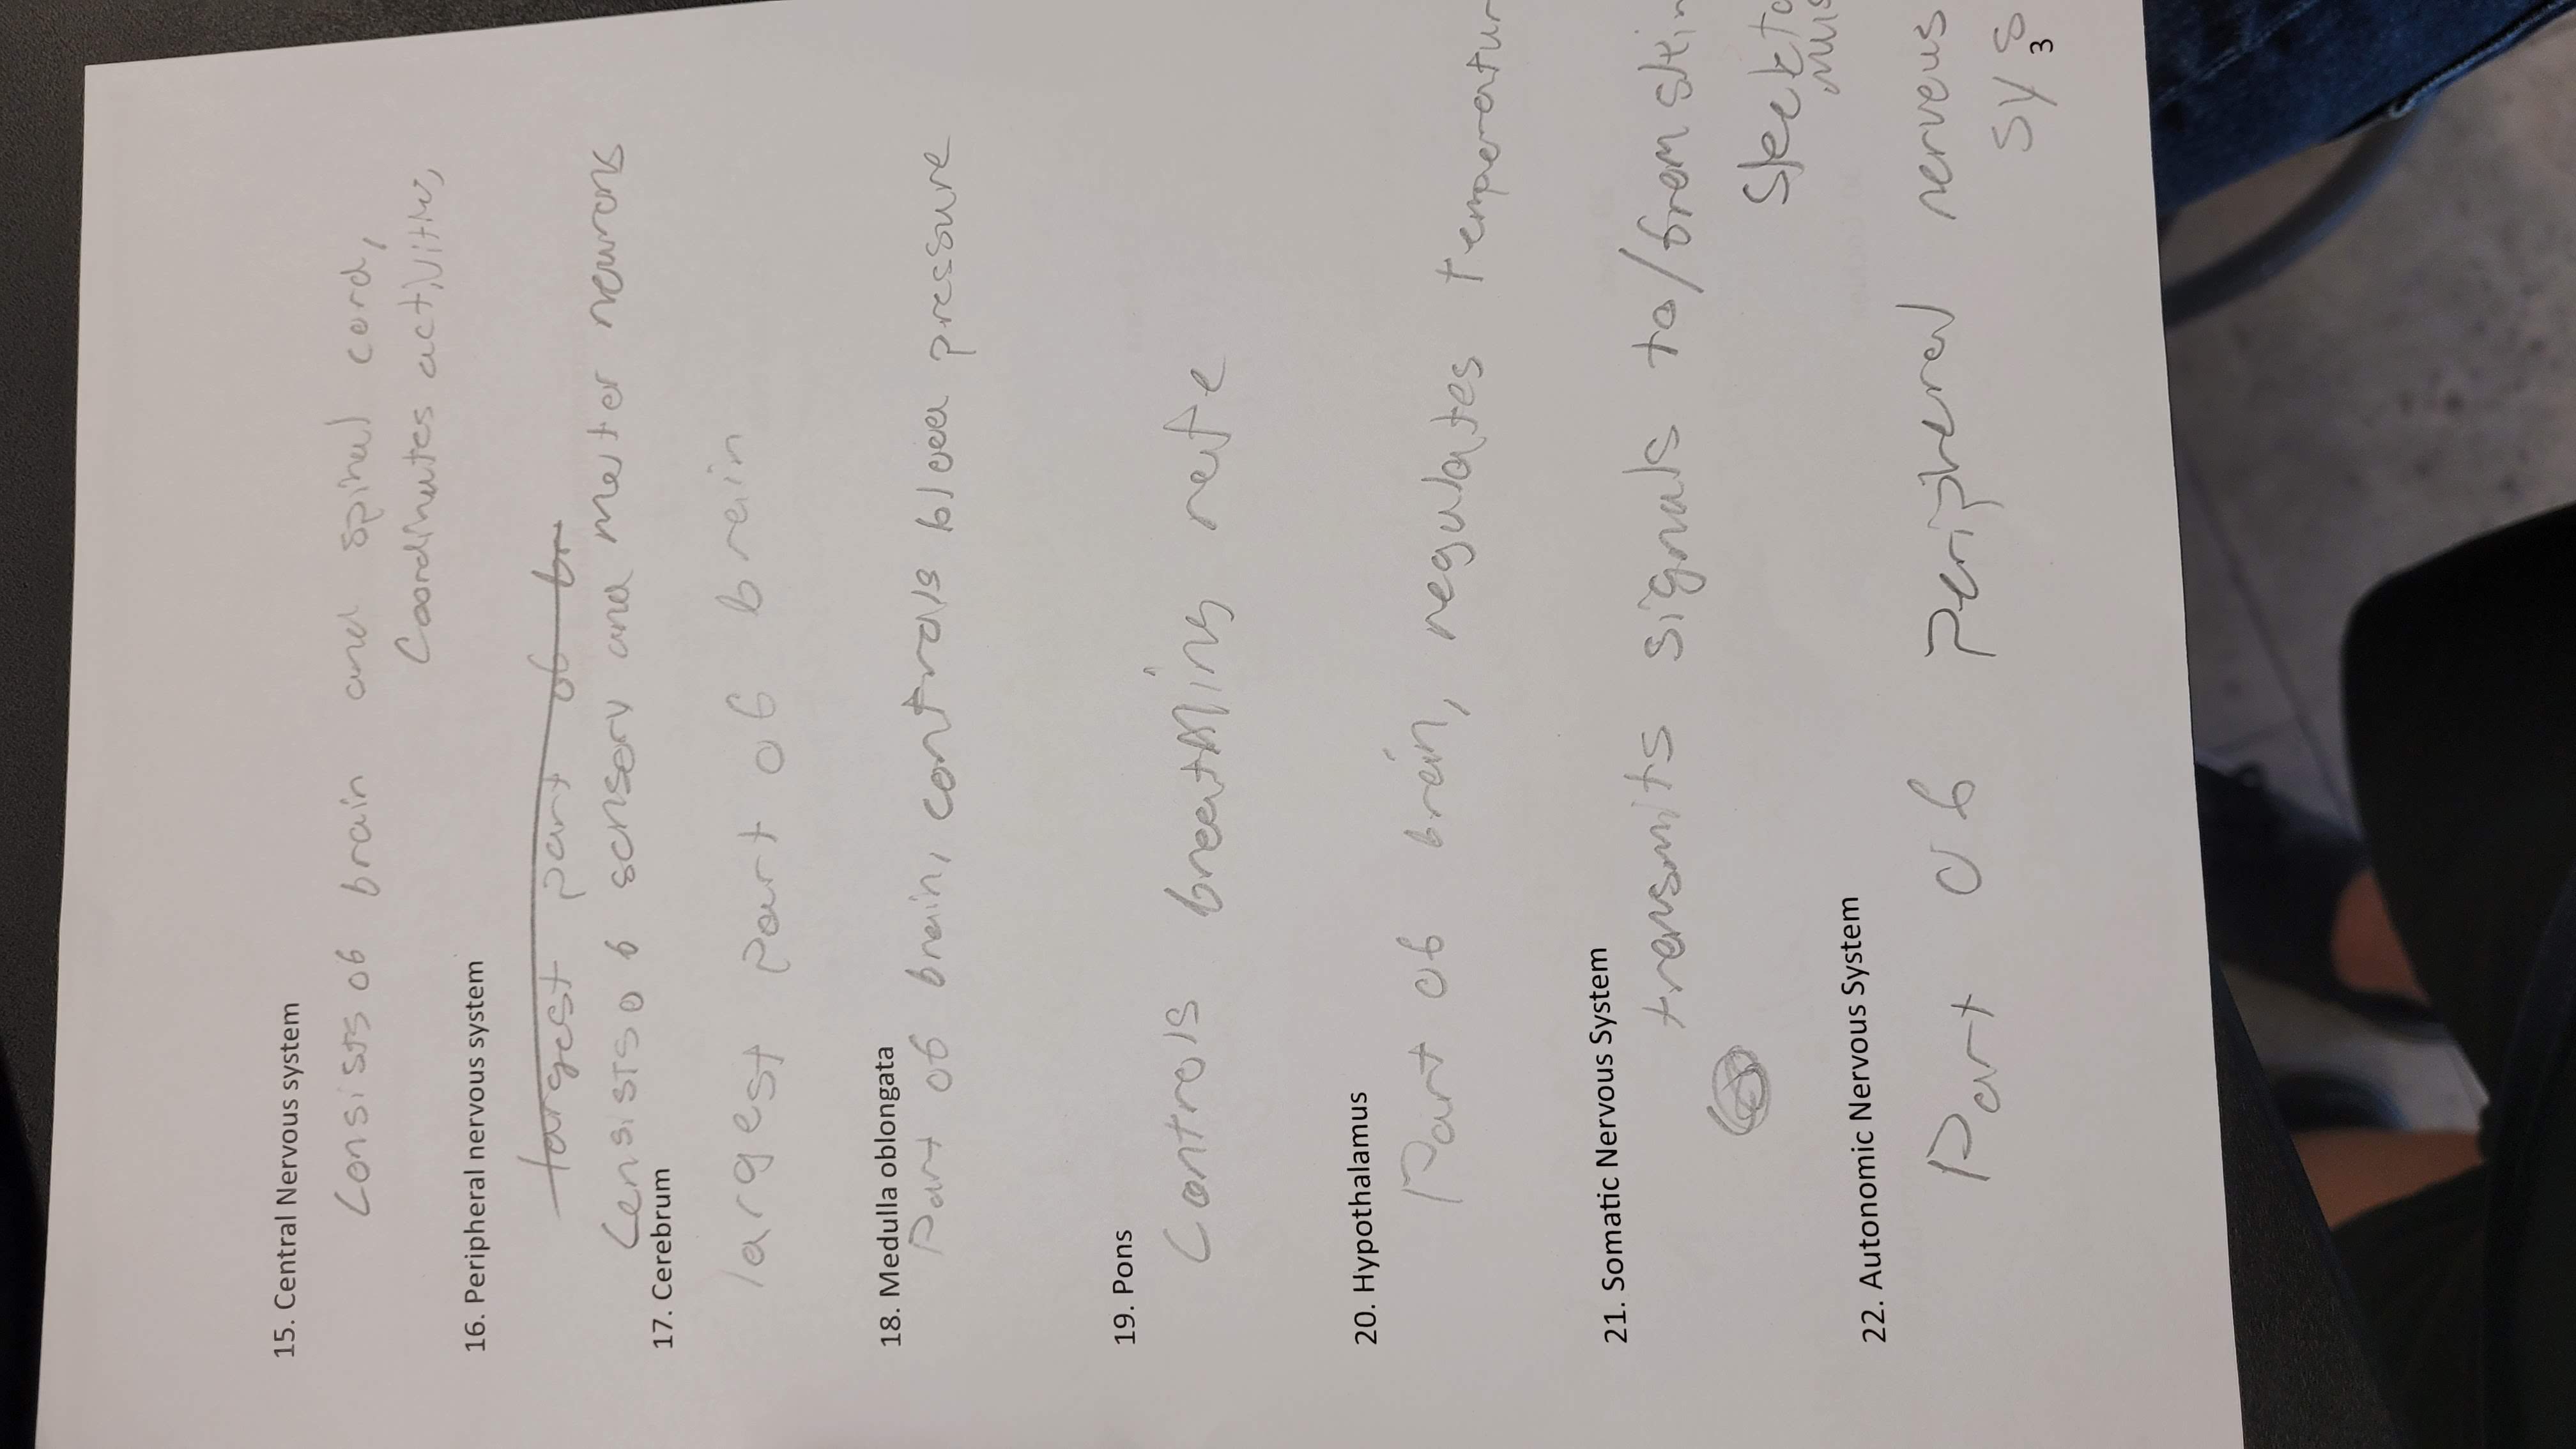 15. Central Nervous system
Consists of brain and spinal cord,
Coordinates
16. Peripheral nervous system
largest part of br
Consists of sensory and motor neurons
17. Cerebrum
largest part of brain
18. Medulla oblongata
Part of brain, controls blood pressure
19. Pons
Controls breathing rate
20. Hypothalamus
Part of brain, regulates temperatur
21. Somatic Nervous System
transmits signals to/from skin
22. Autonomic Nervous System
Part of Peripheral nervous
sys
3